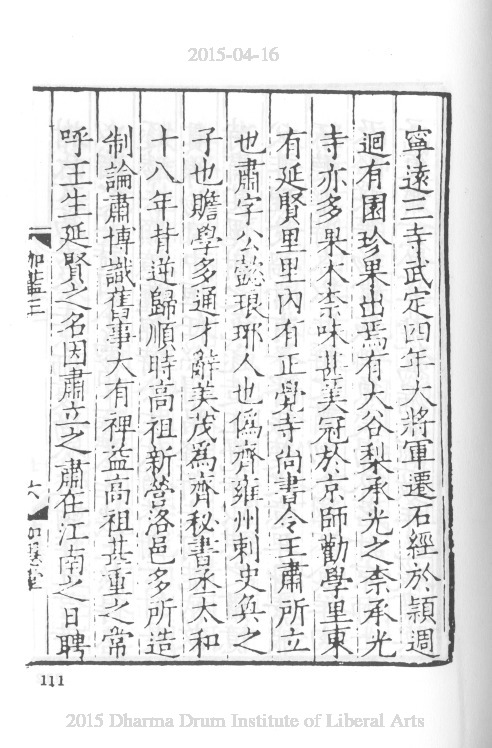 2015-04-16
寧遠三寺武定四年大將軍遷石經於頴週
迴有園珍果出焉有大谷梨承光之柰承光
寺亦多果木柰味甚美冠於京師勸學里東
有延賢里里內有正覺寺尚書令王肅所立
也肅字公懿琅琊人也僞齊雍州刺史奐之
子也贍學多通才辭美茂爲齊秘書丞太和
十八年背逆歸順時高祖新營洛邑多所造
制論肅博識舊事大有裨益高祖甚重之常
呼王生延賢之名因肅立之肅在江南之日聘
伽藍三
六
111
2015 Dharma Drum Institute of Liberal Arts